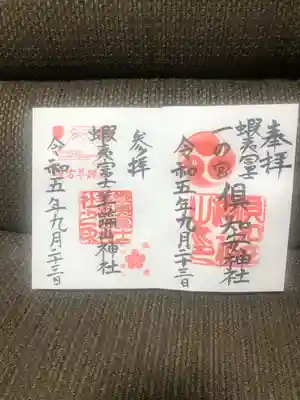 奉拝
蝦夷富士
一の宮 倶知安神社
令和五年九月二十三日
参拝
蝦夷富士羊蹄山神社
令和五年九月二十三日